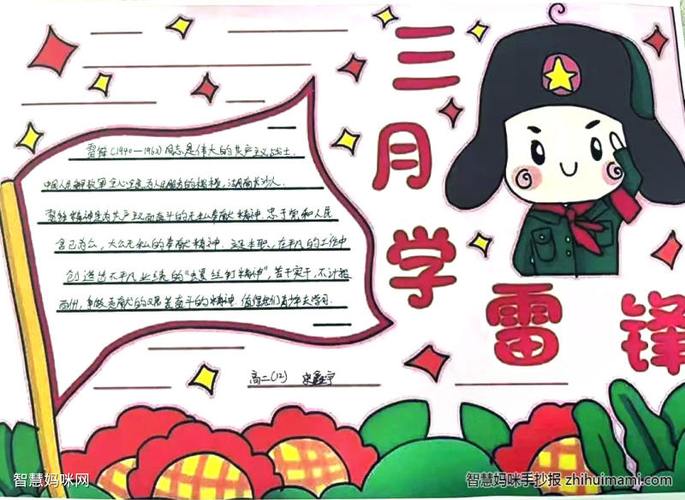 三月学雷锋
雷锋(1940—1962)同志是伟大的共产主义战士.
中国人民解放军全心全意为人民服务的楷模, 湖南长沙人.
雷锋精神是为共产主义而奋斗的无私奉献精神, 忠于党和人民
舍己为公, 大公无私的奉献精神 立足本职, 在平凡的工作中
创造出不平凡业绩的"螺丝钉精神", 苦干实干, 不计报
酬, 争做贡献的艰苦奋斗的精神 值得我们青少年去学习.
高二(12)
智慧妈咪网
智慧妈咪手抄报 zhihuimami.com